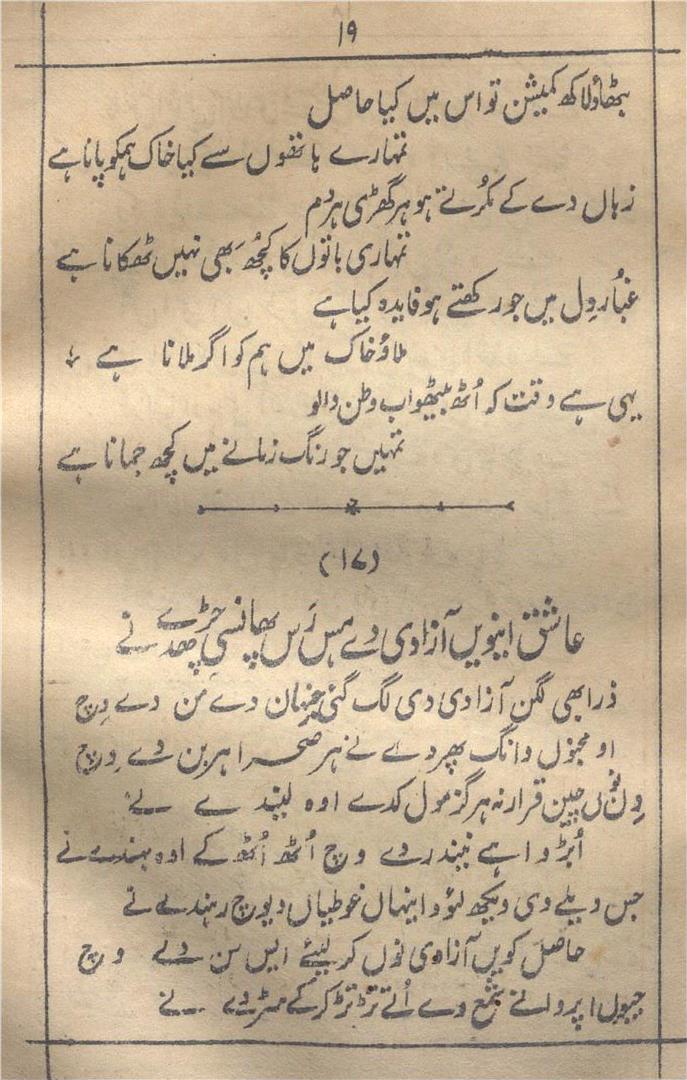 ۱۹
بٹھاؤ لاکھ کمیشن تو اس میں کیا حاصل
تمہارے ہاتھوں سے کیا خاک ہمکو پانا ہے
زباں دے کے مُکرتے ہو ہر گھڑی ہر دم
تمہاری باتوں کا کچُھ بھی نہیں ٹھکانا ہے
غبُار دِل میں جو رکھتے ہو فایدہ کیا ہے
ملاؤ خاک میں ہم کو اگر ملانا ہے
یہی ہے وقت کہ اُٹھ بیٹھو اب وطن والو
تمہیں جو رنگ زمانے میں کچھ جمانا ہے
(۱۷)
عاشق اینویں آزادی دے ہس رَس پھانسی چڑہدے نے
ذرا بھی لگن آزادی دی لگ گئی جنہاں دے من دے وِچ
او مجنوں وانگ پھردے نے ہر صحرا ہر بن دے وِچ
دِن نوں چین قرار نہ ہرگز مول کدے اوہ لیندے نے
اُبڑواہے نیندر دے وچ اُٹھ اُٹھ کے اوہ بہندے نے
جس ویلے وی ویکھ لؤ اینہاں غوطیاں دیوچ رہندے نے
حاصل کویں آزادی نوں کر لیئے ایس سن دے وچ
جیوں پروانے شمع دے اُتے تڑ تڑ کر کے سڑدے نے